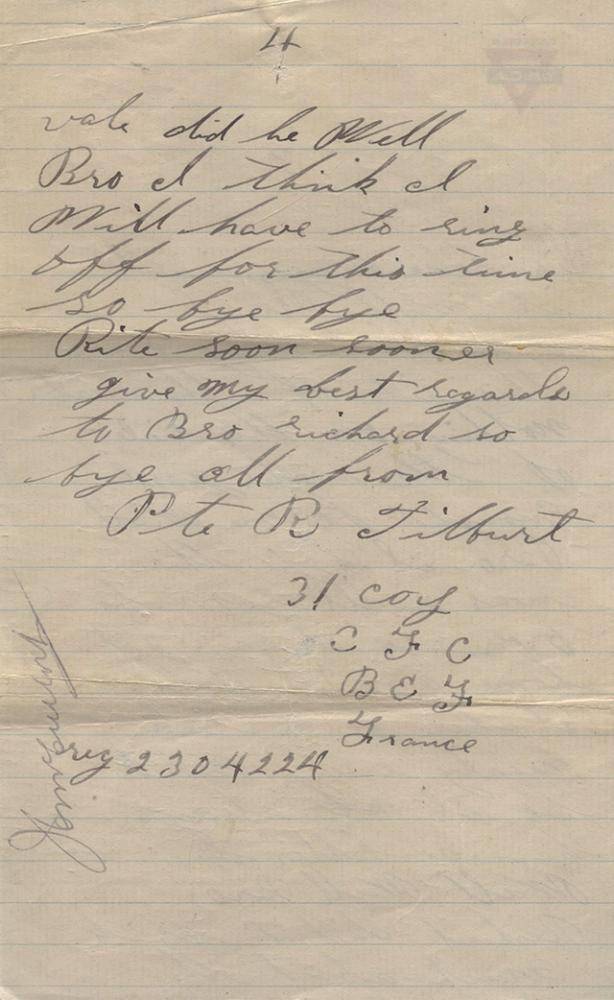 4
vale did he Well
Bro I think I
Will have to ring
off for this time
so bye bye
Rite soon sooner
give my best regards
to Bro richard so
bye all from
Pte R Tilburt
31 Coy
C F C
B E F
France
reg 2304224